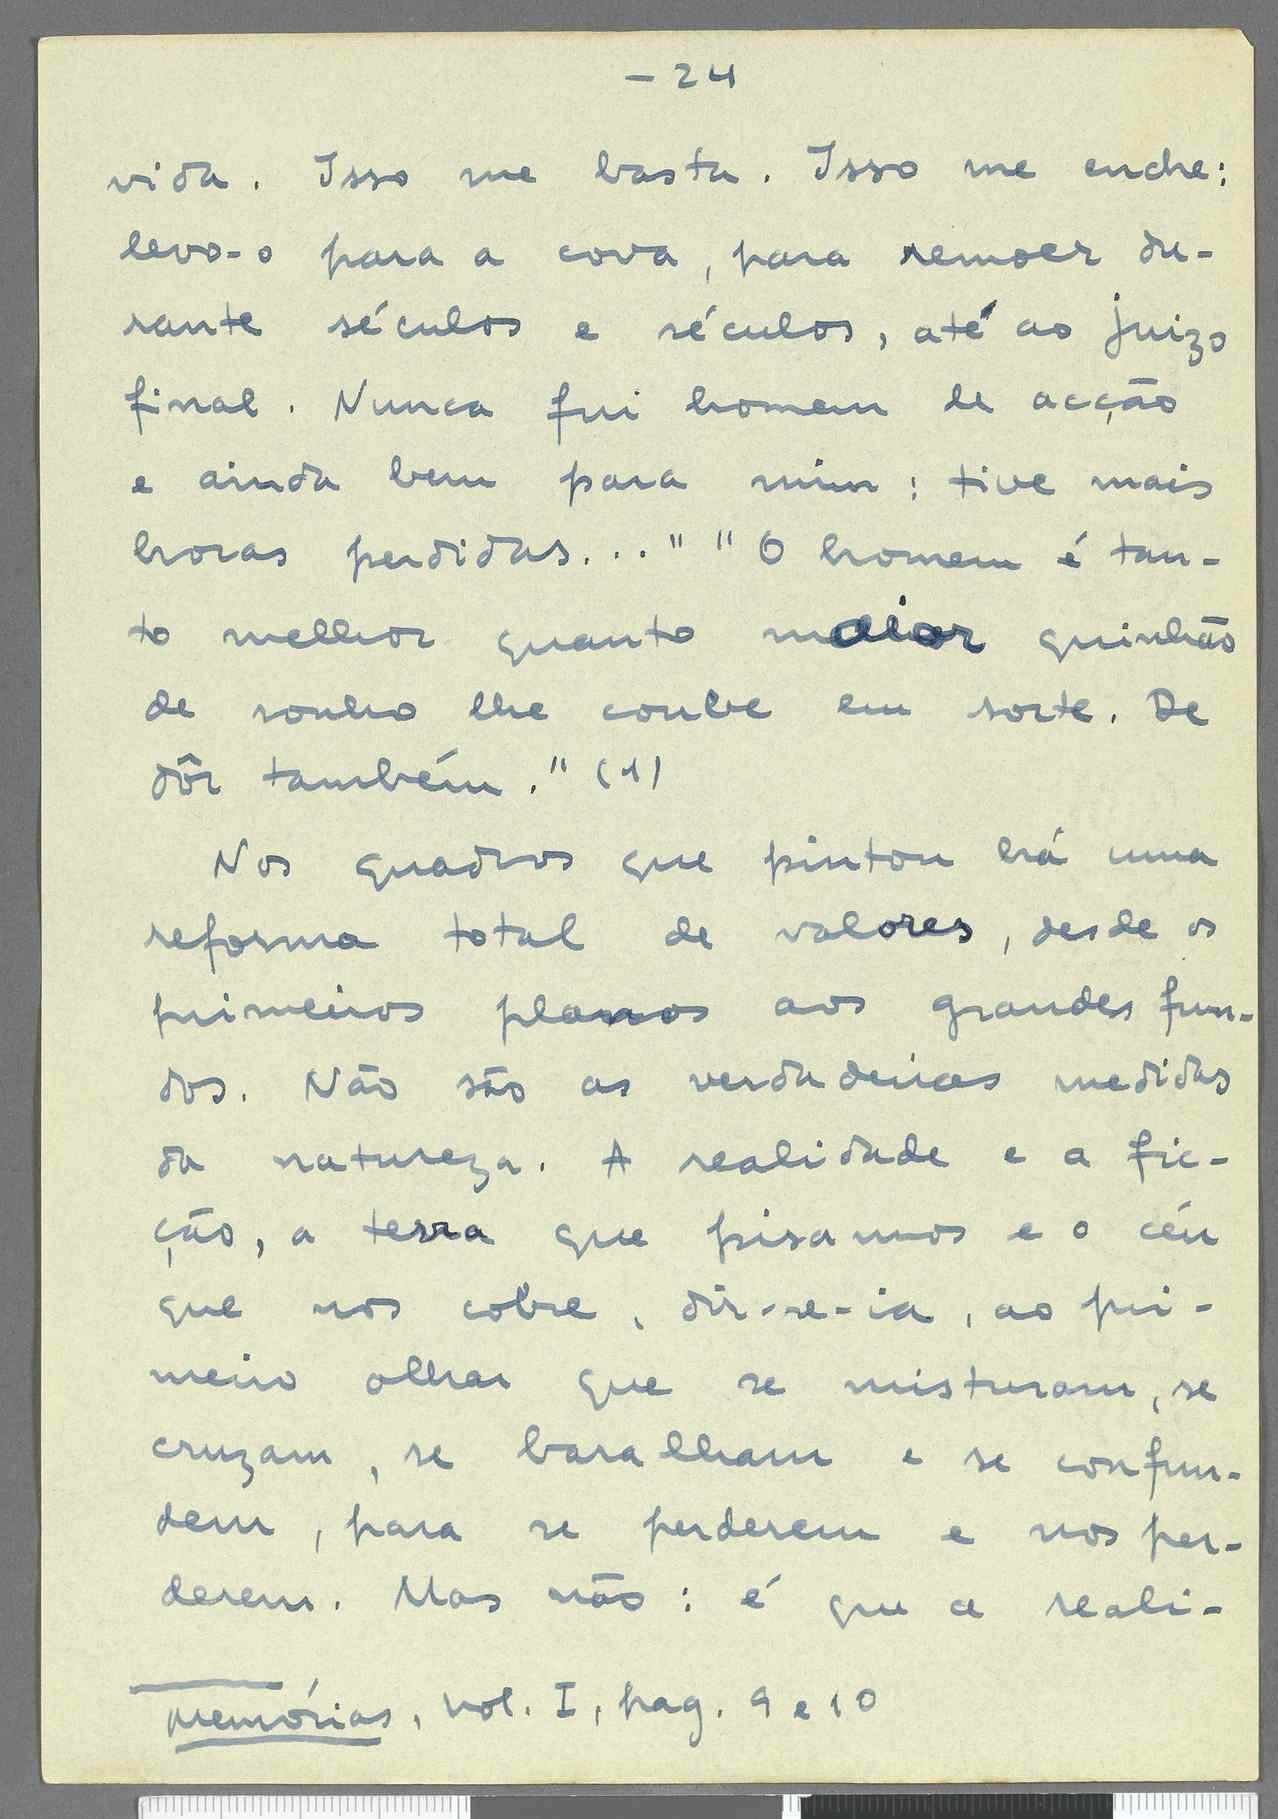 – 24
vida. Isso me basta. Isso me enche:
levo-o para a cova, para remoer du-
rante séculos e séculos, até ao juizo
final. Nunca fui homem de acção
e ainda bem para mim: tive mais
horas perdidas..." "O homem é tan-
to melhor quanto maior quinhão
de sonho lhe coube em sorte. De
dôr também." (1)
Nos quadros que pintou há uma
reforma total de valores, desde os
primeiros planos aos grandes fun-
dos. Não são as verdadeiras medidas
da natureza. A realidade e a fic-
ção, a terra que pisamos e o céu
que nos cobre, dir-se-ia, ao pri-
meiro olhar que se misturam, se
cruzam, se baralham e se confun-
dem, para se perderem e nos per-
derem. Mas não: é que a reali-
Memórias, vol. I, pag. 9 e 10